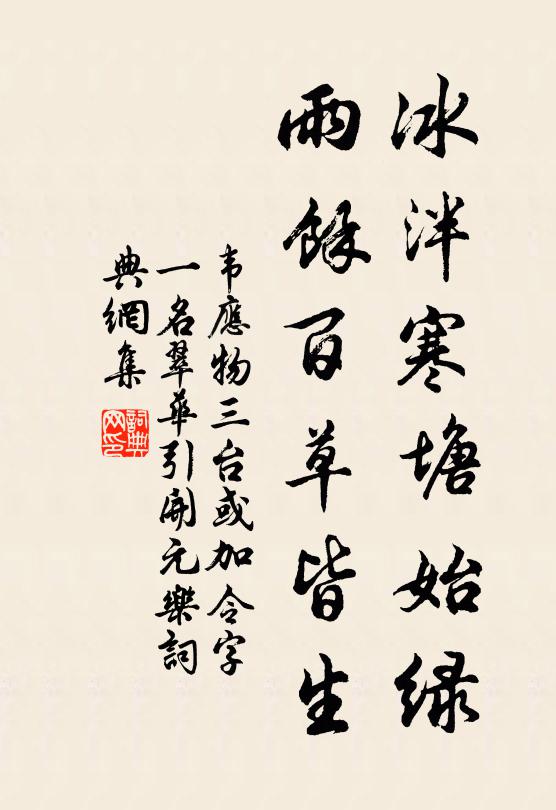 冰泮寒塘始緑
雨餘百草皆生
韦應物三台或加令字
一名翠華引開元樂詞
典網集
詞典网印